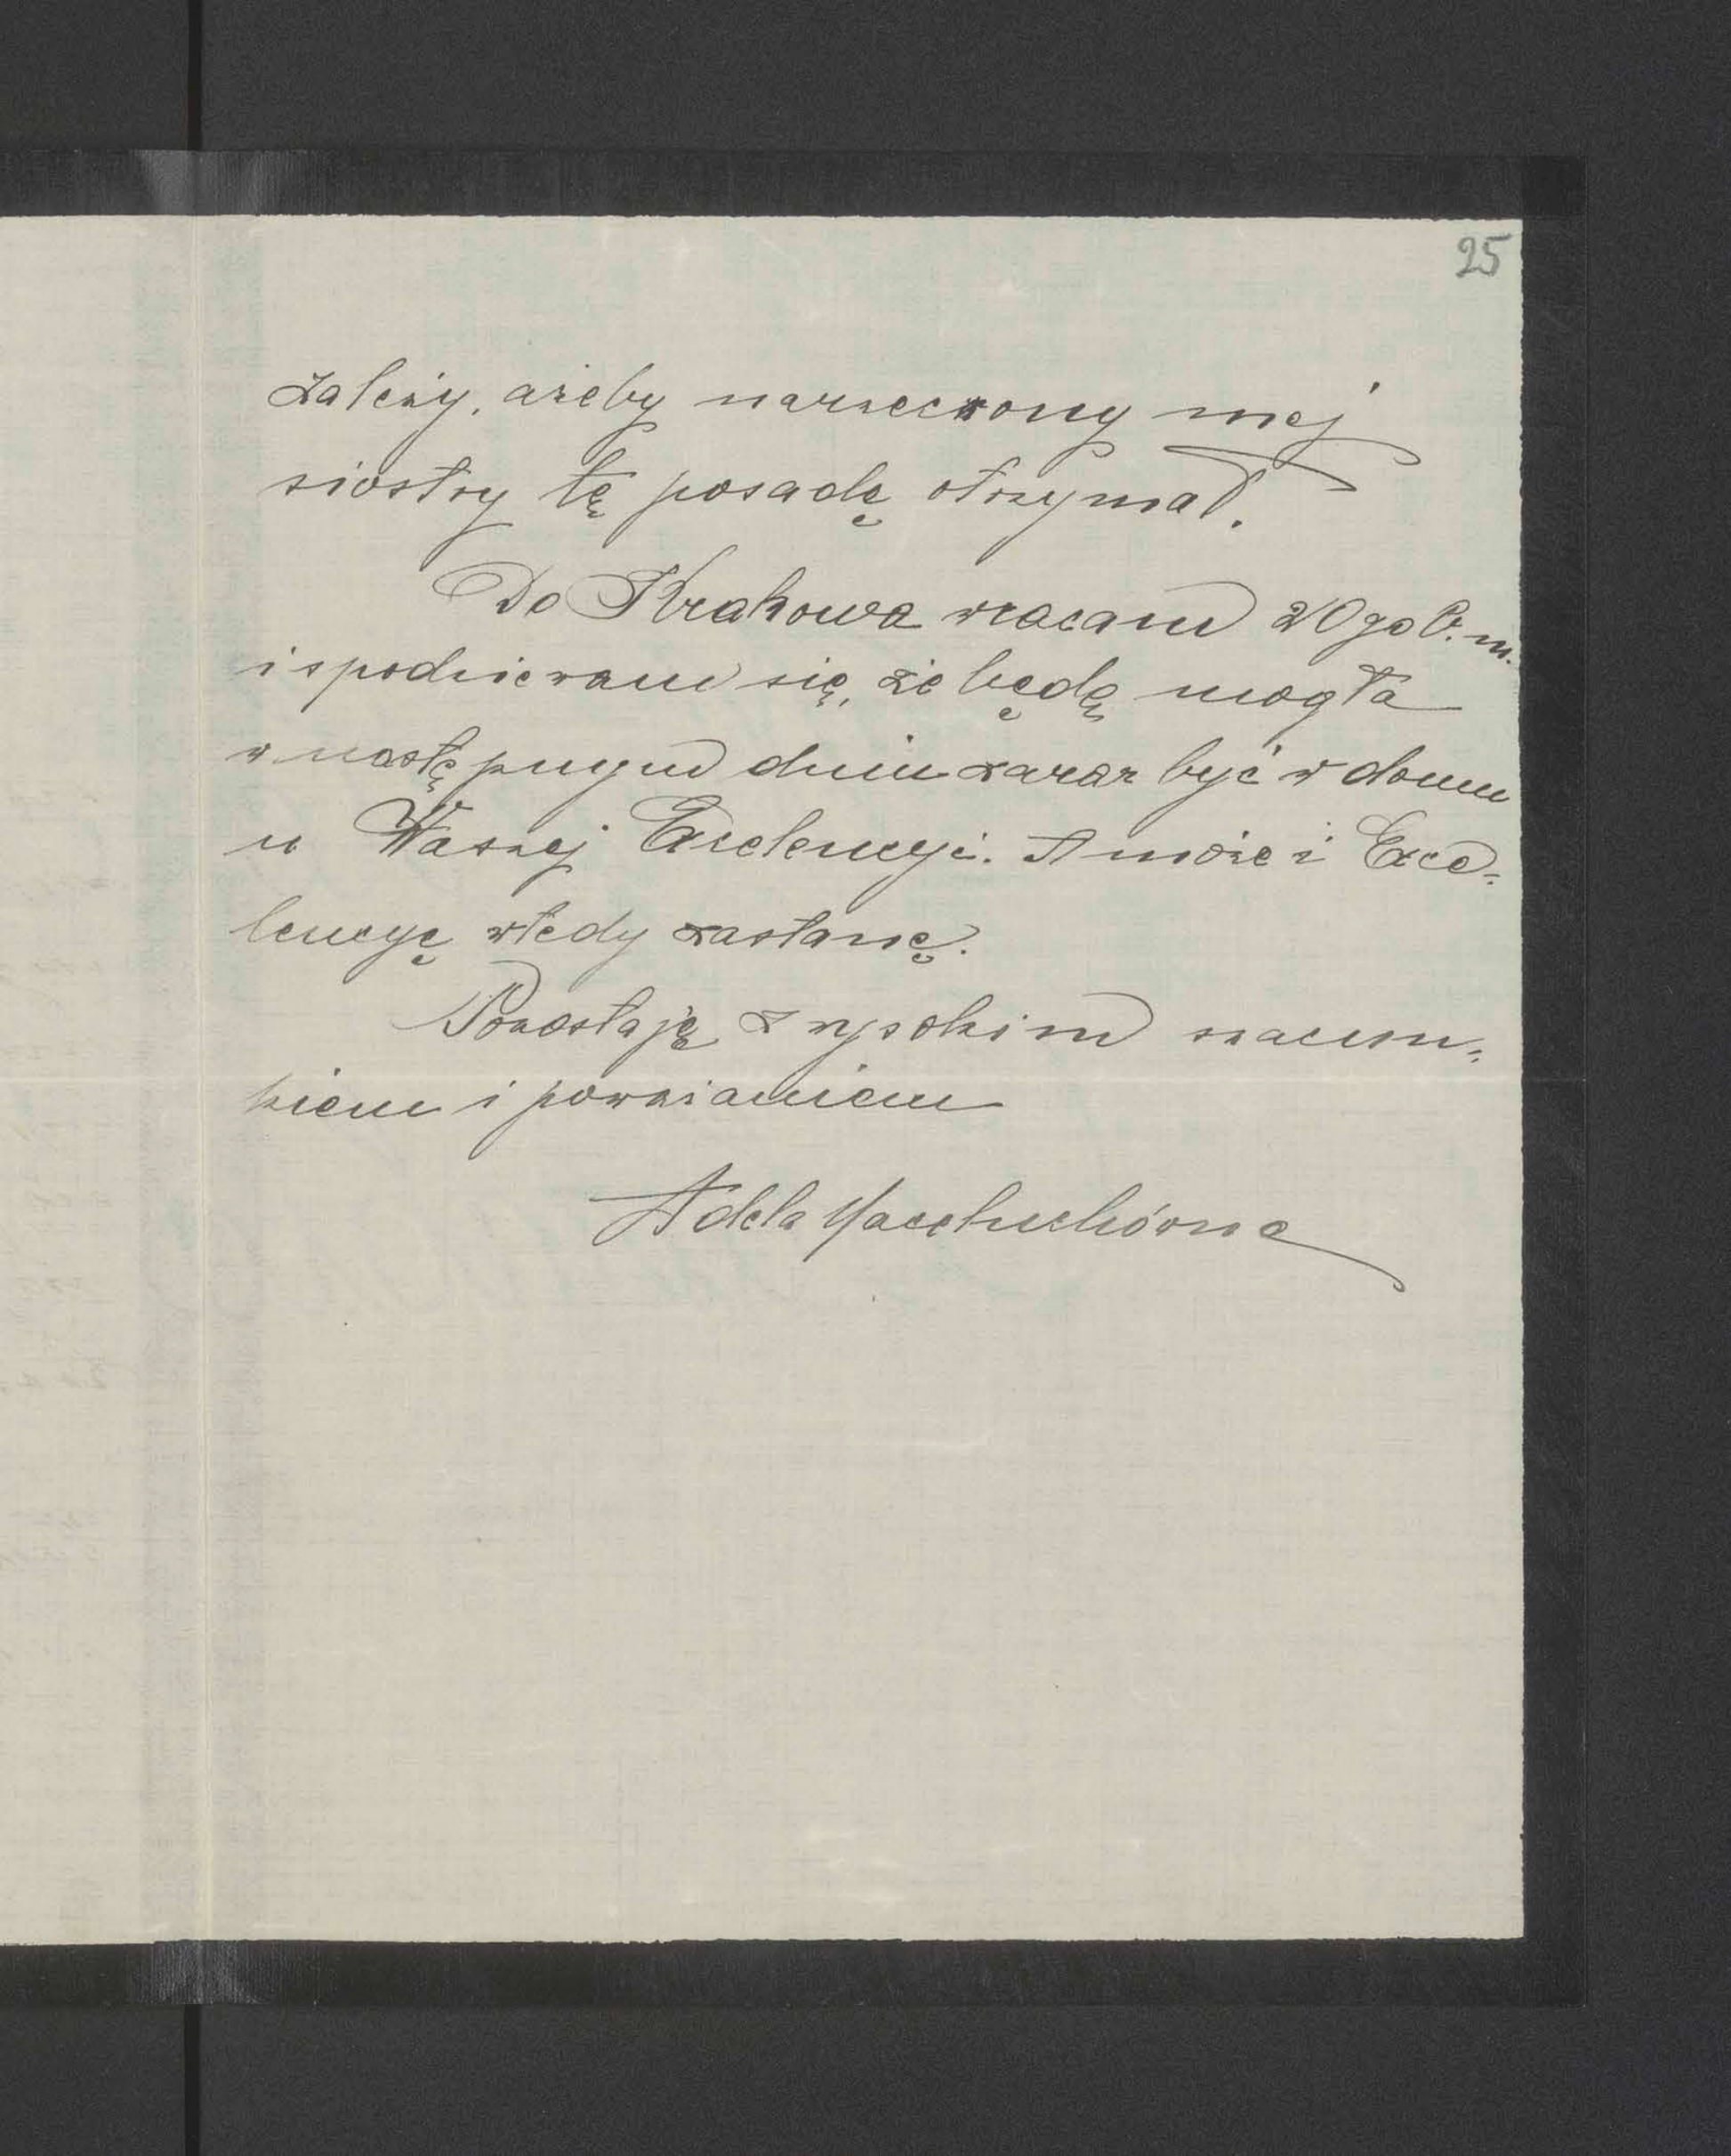 25
zależy, ażeby narzeczony mej
siostry tę posadę otrzymał.
Do Krakowa wracam 20go b. m.
i spodziewam się, że będę mogła
w następnym dniu zaraz być w domu
u Waszej Excelencyi. A może i Exce-
lencyę wtedy zastanę.
Pozostaję z wysokim szacun-
kiem i poważaniem
Adela